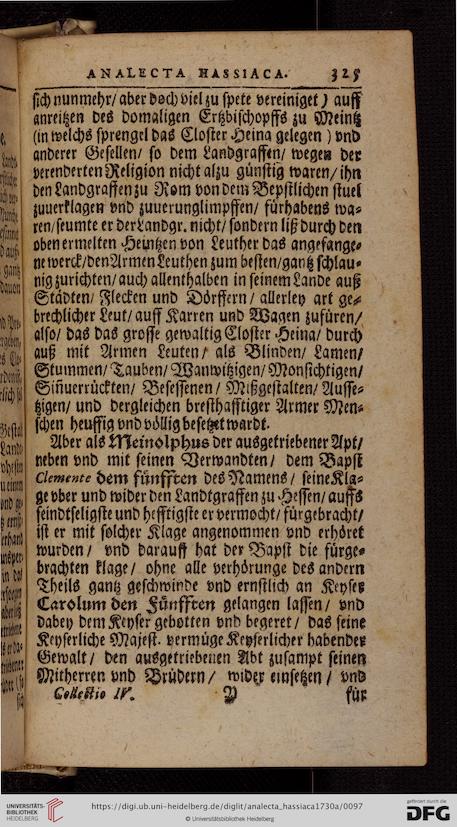 ANALECTA HASSIACA. 325
sich nunmehr/ aber doch viel zu spete vereiniget) auff
anreitzen des domaligen Ertzbischopffs zu Meintz
(in welchs sprengel das Closter Heina gelegen) vnd
anderer Gesellen/ so dem Landgraffen/ wegen der
verenderten Religion nicht alzu günstig waren/ ihn
den Landgraffen zu Rom von dem Bepstlichen stuel
zuuerklagen vnd zuuerunglimpffen/ fürhabens wa-
ren/ seumte er der Landgr. nicht/ sondern liß durch den
oben ermelten Heintzen von Leuther das angefange-
ne werck/ den Armen Leuthen zum besten/ gantz schlau-
nig zurichten/ auch allenthalben in seinem Lande auß
Städten/ Flecken und Dörffern/ allerley art ge-
brechlicher Leut/ auff Karren und Wagen zufüren/
also/ das das grosse gewaltig Closter Heina/ durch
auß mit Armen Leuten/ als Blinden/ Lamen/
Stummen/ Tauben/ Wanwitzigen/ Monsichtigen/
Siñuerrückten/ Besessenen/ Mißgestalten/ Ausse-
tzigen/ und dergleichen bresthafftiger Armer Men-
schen heuffig vnd völlig besetzet wardt.
Aber als Meinolphus der ausgetriebener Apt/
neben vnd mit seinen Verwandten/ dem Bapst
Clemente dem fünfften des Namens/ seine Kla-
ge vber und wider den Landtgraffen zu Hessen/ auffs
feindtseligste und hefftigste er vermocht/ fürgebracht/
ist er mit solcher Klage angenommen vnd erhöret
wurden/ vnd darauff hat der Bapst die fürge-
brachten klage/ ohne alle verhörunge des andern
Theils gantz geschwinde vnd ernstlich an Keyser
Carolum den Fünfften gelangen lassen/ vnd
dabey dem Keyser gebotten vnd begeret/ das seine
Keyserliche Majest. vermüge Keyserlicher habender
Gewalt/ den ausgetriebenen Abt zusampt seinen
Mitherren vnd Brüdern/ wider einsetzen/ vnd
Collectio IV. Y für
UNIVERSITÄTS-
BIBLIOTHEK
HEIDELBERG
https://digi.ub.uni-heidelberg.de/diglit/analecta_hassiaca1730a/0097
© Universitätsbibliothek Heidelberg
gefördert durch die
DFG